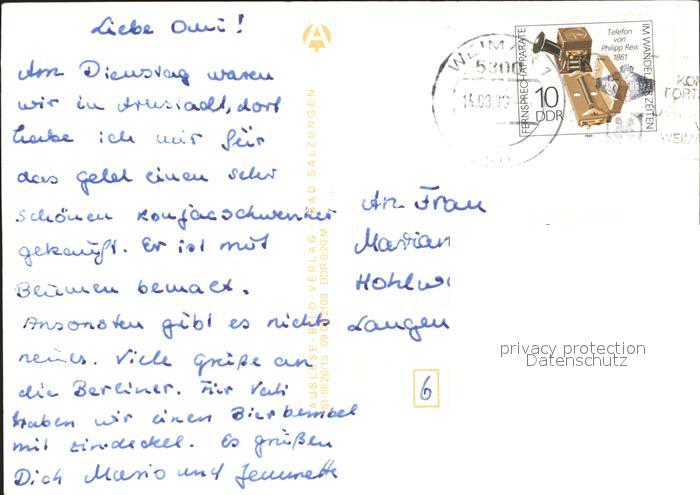 Liebe Omi!
Am Dienstag waren
wir in Arnstadt, dort
habe ich mir für
das Geld einen sehr
schönen Konjacschwenker
gekauft. Er ist mit
Blumen bemalt.
Ansonsten gibt es nichts
neues. Viele Grüße an
die Berliner. Für Vati
haben wir einen Bierbembel
mit Zinndeckel. Es grüßen
Dich Mario und Jeannette
AUSLESE-BILD-VERLAG · BAD SALZUNGEN
DDR 0,20 M
FERNSPRECHAPPARATE
IM WANDEL DER ZEITEN
Telefon
von
Philipp Reis
1861
10
DDR
WEIMAR 1
5300
An Frau
Marian
Hohlw
Langen
6
privacy protection
Datenschutz